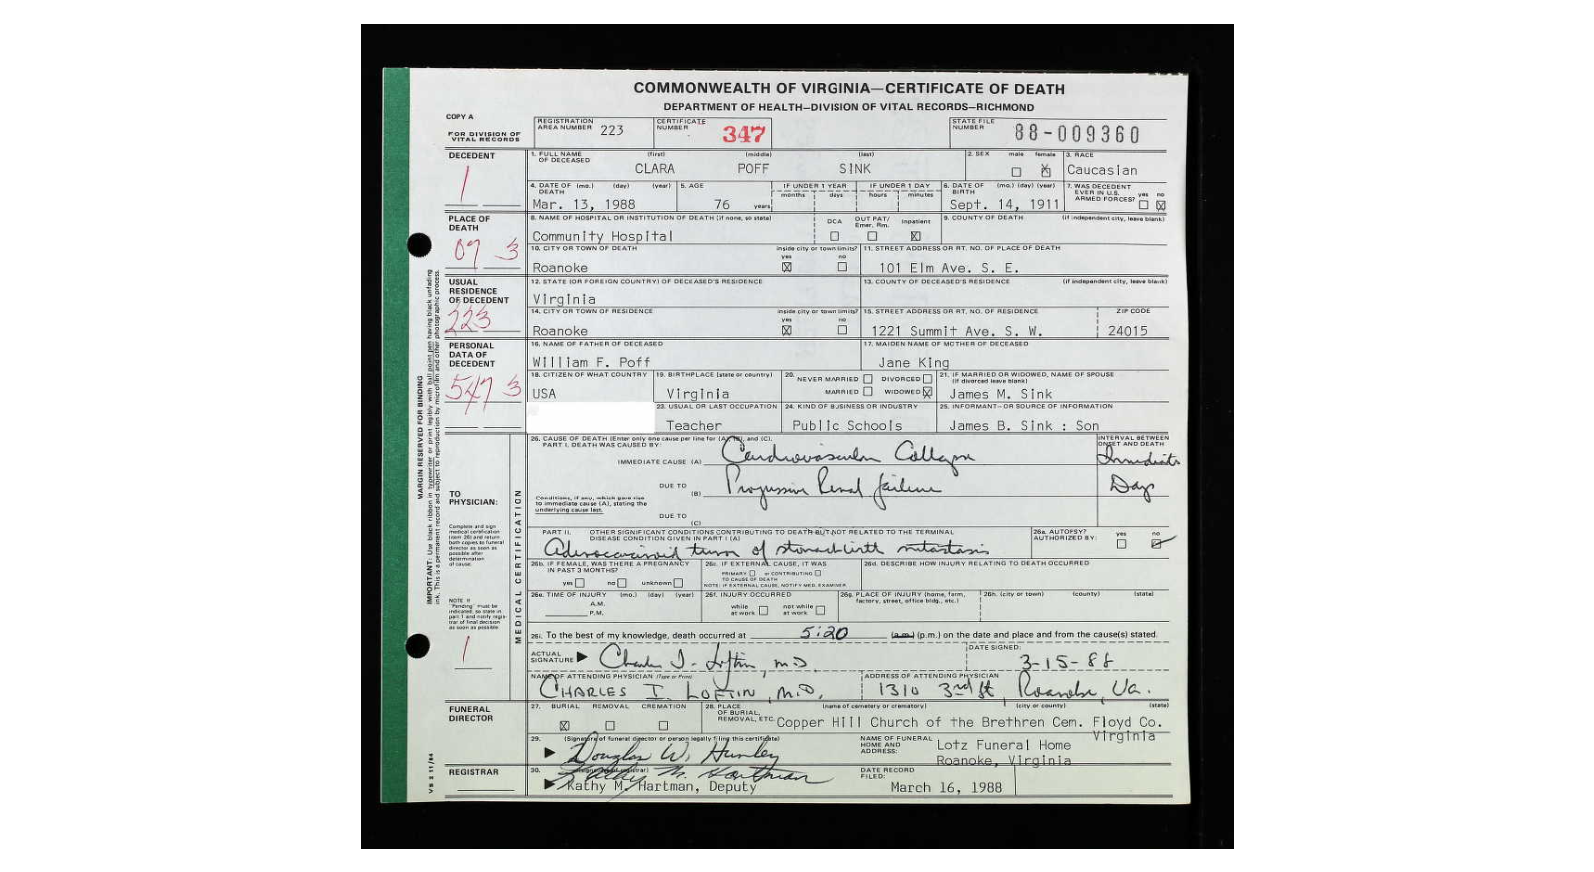 COMMONWEALTH OF VIRGINIA—CERTIFICATE OF DEATH
DEPARTMENT OF HEALTH—DIVISION OF VITAL RECORDS—RICHMOND
COPY A
FOR DIVISION OF VITAL RECORDS
REGISTRATION AREA NUMBER 223
CERTIFICATE NUMBER 347
STATE FILE NUMBER 88-009360
DECEDENT
1
1. FULL NAME OF DECEASED (first) (middle) (last)
CLARA POFF SINK
2. SEX male female
3. RACE
Caucasian
4. DATE OF DEATH (mo.) (day) (year)
Mar. 13, 1988
5. AGE
76 years
IF UNDER 1 YEAR months days
IF UNDER 1 DAY hours minutes
6. DATE OF BIRTH (mo.) (day) (year)
Sept. 14, 1911
7. WAS DECEDENT EVER IN U.S. ARMED FORCES? yes no
PLACE OF DEATH
07 3
8. NAME OF HOSPITAL OR INSTITUTION OF DEATH (if none, so state)
Community Hospital
DCA OUT PAT/ Emer. Rm. Inpatient
9. COUNTY OF DEATH (if independent city, leave blank)
10. CITY OR TOWN OF DEATH
Roanoke
inside city or town limits? yes no
11. STREET ADDRESS OR RT. NO. OF PLACE OF DEATH
101 Elm Ave. S. E.
USUAL RESIDENCE OF DECEDENT
223
12. STATE (OR FOREIGN COUNTRY) OF DECEASED'S RESIDENCE
Virginia
13. COUNTY OF DECEASED'S RESIDENCE (if independent city, leave blank)
14. CITY OR TOWN OF RESIDENCE
Roanoke
inside city or town limits? yes no
15. STREET ADDRESS OR RT. NO. OF RESIDENCE
1221 Summit Ave. S. W.
ZIP CODE
24015
PERSONAL DATA OF DECEDENT
547 3
16. NAME OF FATHER OF DECEASED
William F. Poff
17. MAIDEN NAME OF MOTHER OF DECEASED
Jane King
18. CITIZEN OF WHAT COUNTRY
USA
19. BIRTHPLACE (state or country)
Virginia
20. NEVER MARRIED DIVORCED
MARRIED WIDOWED
21. IF MARRIED OR WIDOWED, NAME OF SPOUSE (if divorced leave blank)
James M. Sink
23. USUAL OR LAST OCCUPATION
Teacher
24. KIND OF BUSINESS OR INDUSTRY
Public Schools
25. INFORMANT—OR SOURCE OF INFORMATION
James B. Sink : Son
MARGIN RESERVED FOR BINDING
IMPORTANT: Use black ribbon in typewriter or print legibly with ball point pen having black unfading
ink. This is a permanent record and subject to reproduction by microfilm and other photographic process.
TO PHYSICIAN:
Complete and sign medical certification (item 26) and return both copies to funeral director as soon as possible after determination of cause.
NOTE If "Pending" must be indicated, so state in part 1 and notify registrar of final decision as soon as possible
1
MEDICAL CERTIFICATION
26. CAUSE OF DEATH (Enter only one cause per line for (A), (B), and (C).
PART I. DEATH WAS CAUSED BY:
INTERVAL BETWEEN ONSET AND DEATH
IMMEDIATE CAUSE (A) Cardiovascular Collapse Immediate
DUE TO (B) Progressive Renal failure Days
Conditions, if any, which gave rise to immediate cause (A), stating the underlying cause last.
DUE TO (C)
PART II. OTHER SIGNIFICANT CONDITIONS CONTRIBUTING TO DEATH BUT NOT RELATED TO THE TERMINAL DISEASE CONDITION GIVEN IN PART I (A)
tumor of stomach with metastasis
26a. AUTOPSY? AUTHORIZED BY: yes no
26b. IF FEMALE, WAS THERE A PREGNANCY IN PAST 3 MONTHS?
yes no unknown
26c. IF EXTERNAL CAUSE, IT WAS
PRIMARY or CONTRIBUTING TO CAUSE OF DEATH
NOTE: IF EXTERNAL CAUSE, NOTIFY MED. EXAMINER
26d. DESCRIBE HOW INJURY RELATING TO DEATH OCCURRED
26e. TIME OF INJURY (mo.) (day) (year)
A.M.
P.M.
26f. INJURY OCCURRED
while at work not while at work
26g. PLACE OF INJURY (home, farm, factory, street, office bldg., etc.)
26h. (city or town) (county) (state)
26i. To the best of my knowledge, death occurred at 5:20 (a.m.) (p.m.) on the date and place and from the cause(s) stated.
ACTUAL SIGNATURE Charles I. Loftin, M.D.
DATE SIGNED:
3-15-88
NAME OF ATTENDING PHYSICIAN (Type or Print)
CHARLES I. LOFTIN, M.D.
ADDRESS OF ATTENDING PHYSICIAN
1310 3rd St, Roanoke, Va.
FUNERAL DIRECTOR
27. BURIAL REMOVAL CREMATION
28. PLACE OF BURIAL, REMOVAL, ETC. (name of cemetery or crematory) (city or county) (state)
Copper Hill Church of the Brethren Cem. Floyd Co.
Virginia
29. (Signature of funeral director or person legally filing this certificate)
Douglas W. Hunley
NAME OF FUNERAL HOME AND ADDRESS:
Lotz Funeral Home
Roanoke, Virginia
REGISTRAR
30. (Signature of registrar)
Kathy M. Hartman
Kathy M. Hartman, Deputy
DATE RECORD FILED:
March 16, 1988
VS 2 11/84